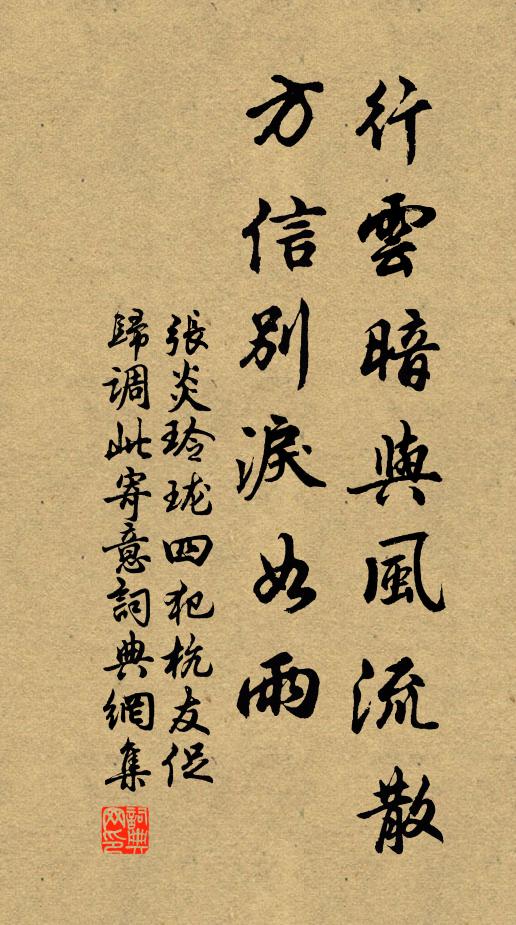 行雲暗與風流散
方信別淚如雨
張炎玲瓏四犯杭友促
歸調此寄意詞典網集
詞典
网印